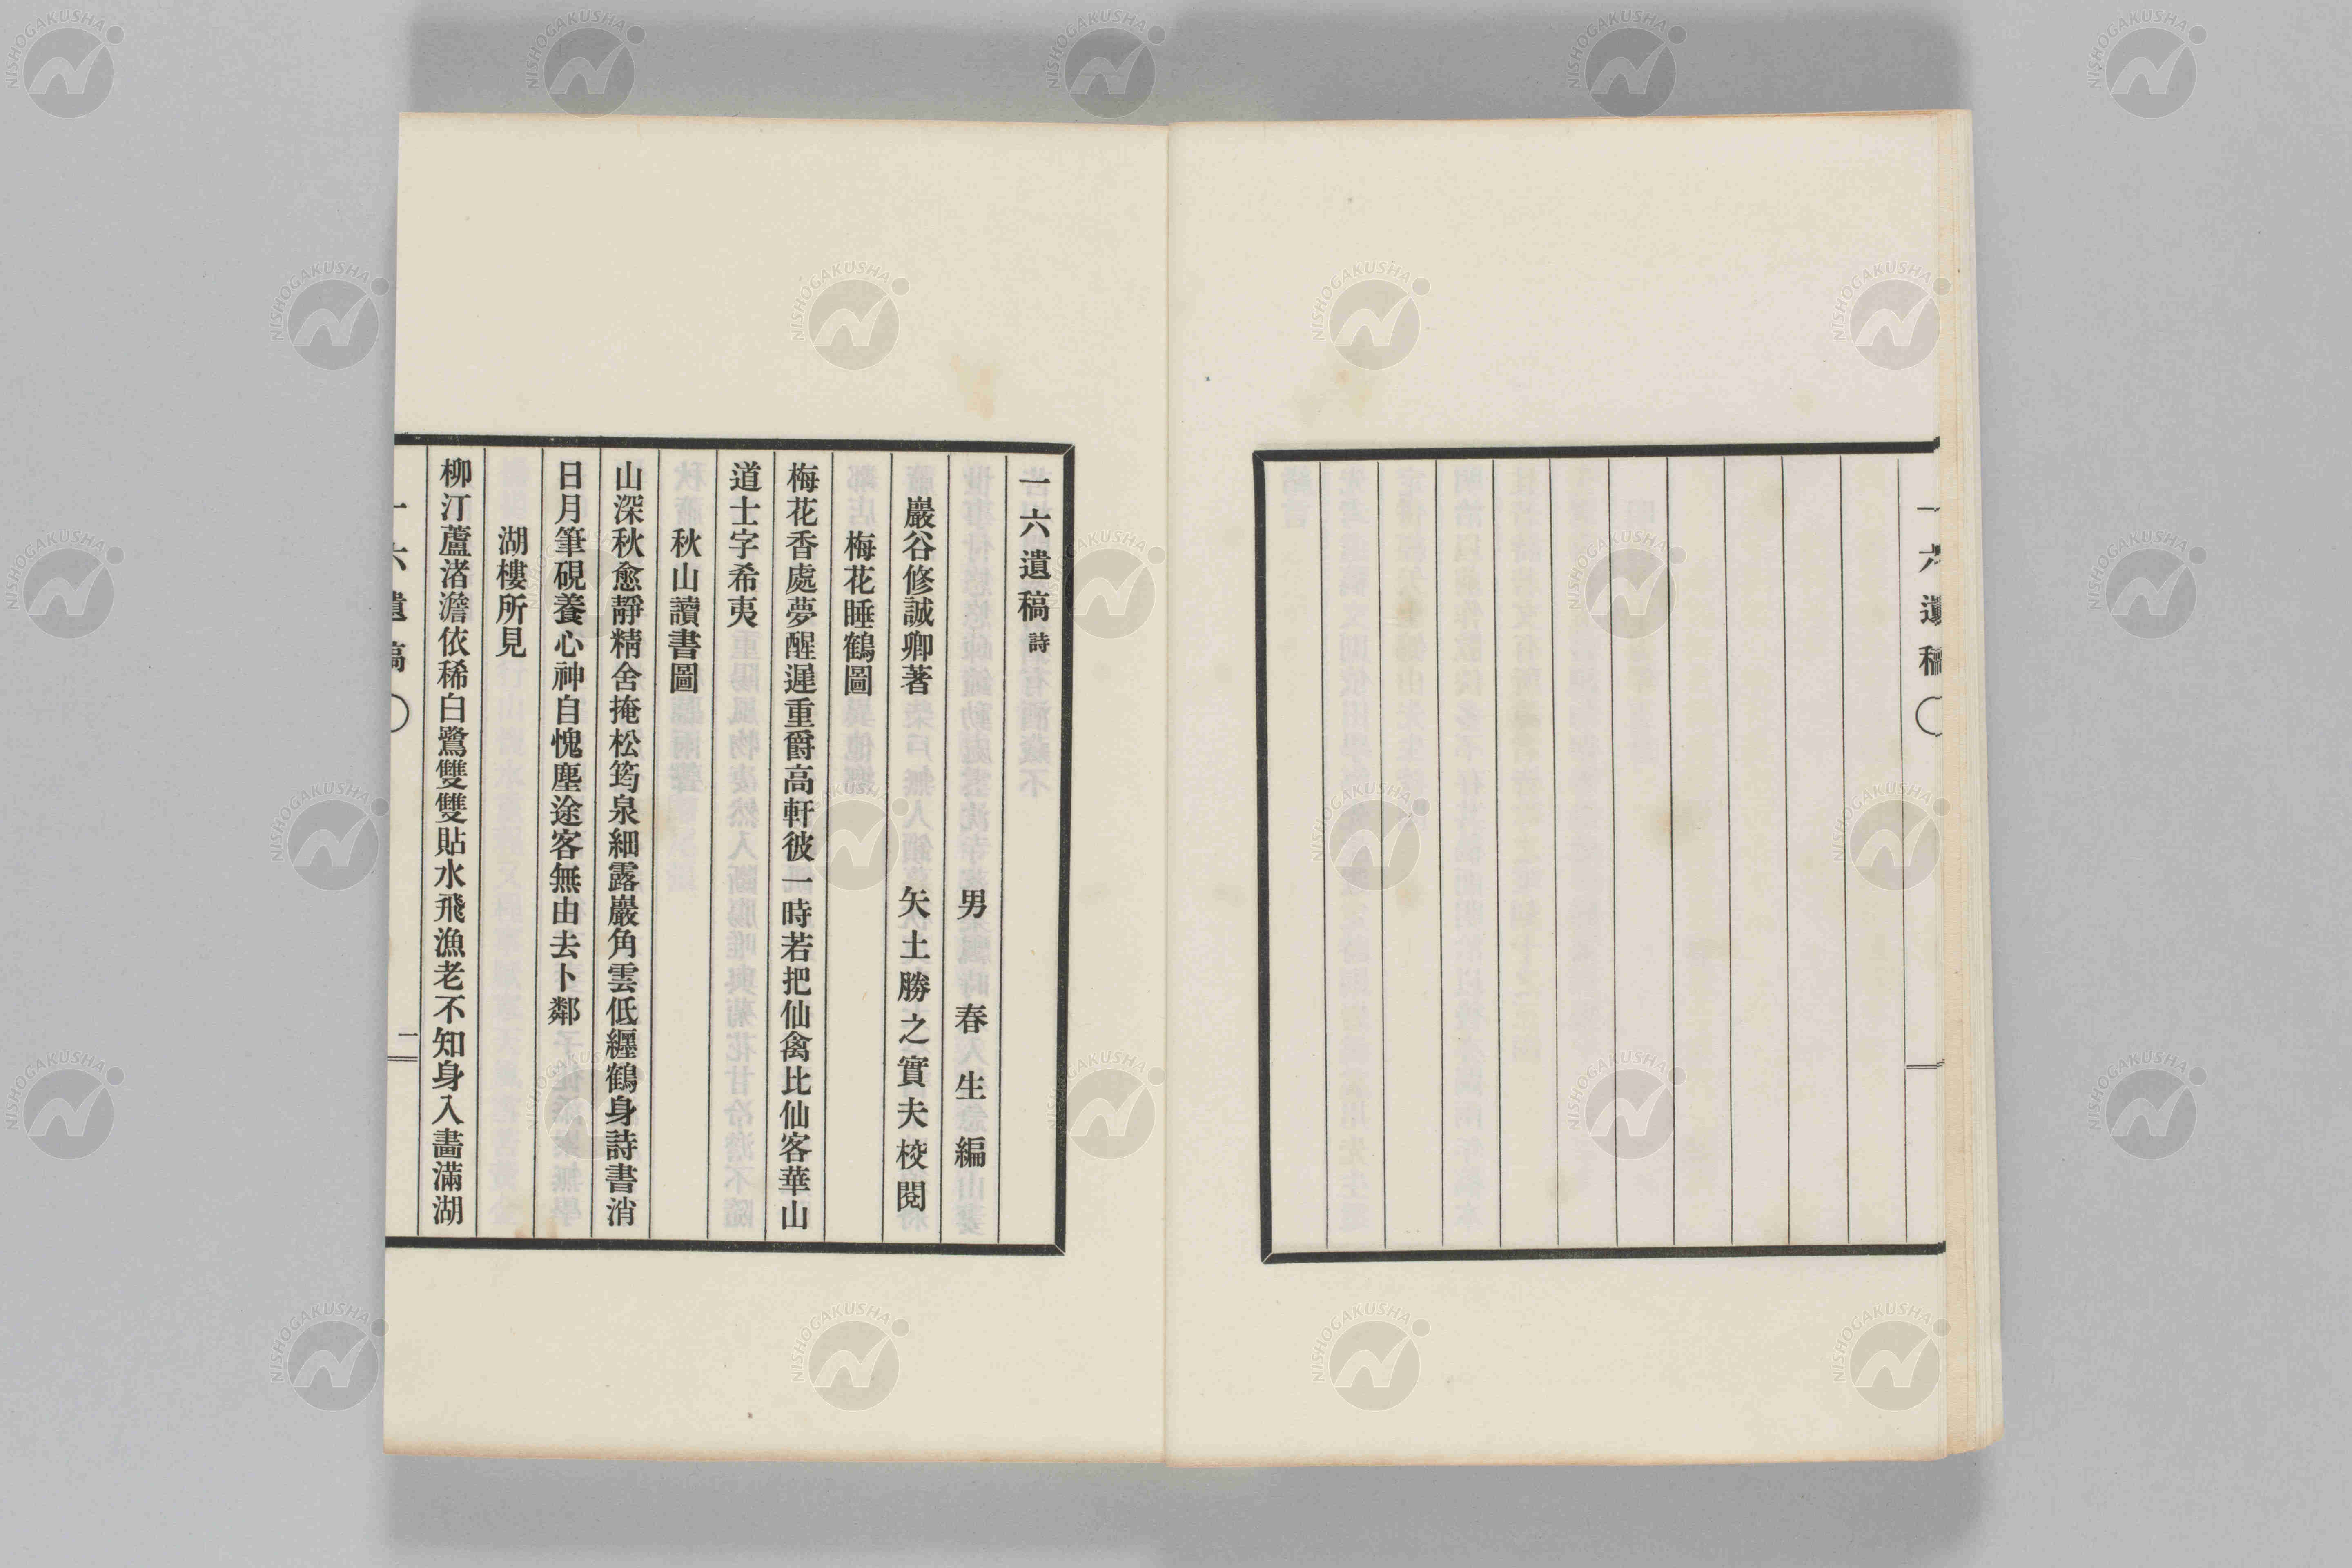 一六遺稿
一六遺稿 詩
男 春生編
巖谷修誠卿著 矢土勝之實夫校閱
梅花睡鶴圖
梅花香處夢醒遲重爵高軒彼一時若把仙禽比仙客華山
道士字希夷
秋山讀書圖
山深秋愈靜精舍掩松筠泉細露巖角雲低纒鶴身詩書消
日月筆硯養心神自愧塵途客無由去卜鄰
湖樓所見
柳汀蘆渚澹依稀白鷺雙雙貼水飛漁老不知身入畵滿湖
一六遺稿 一
NISHOGAKUSHA